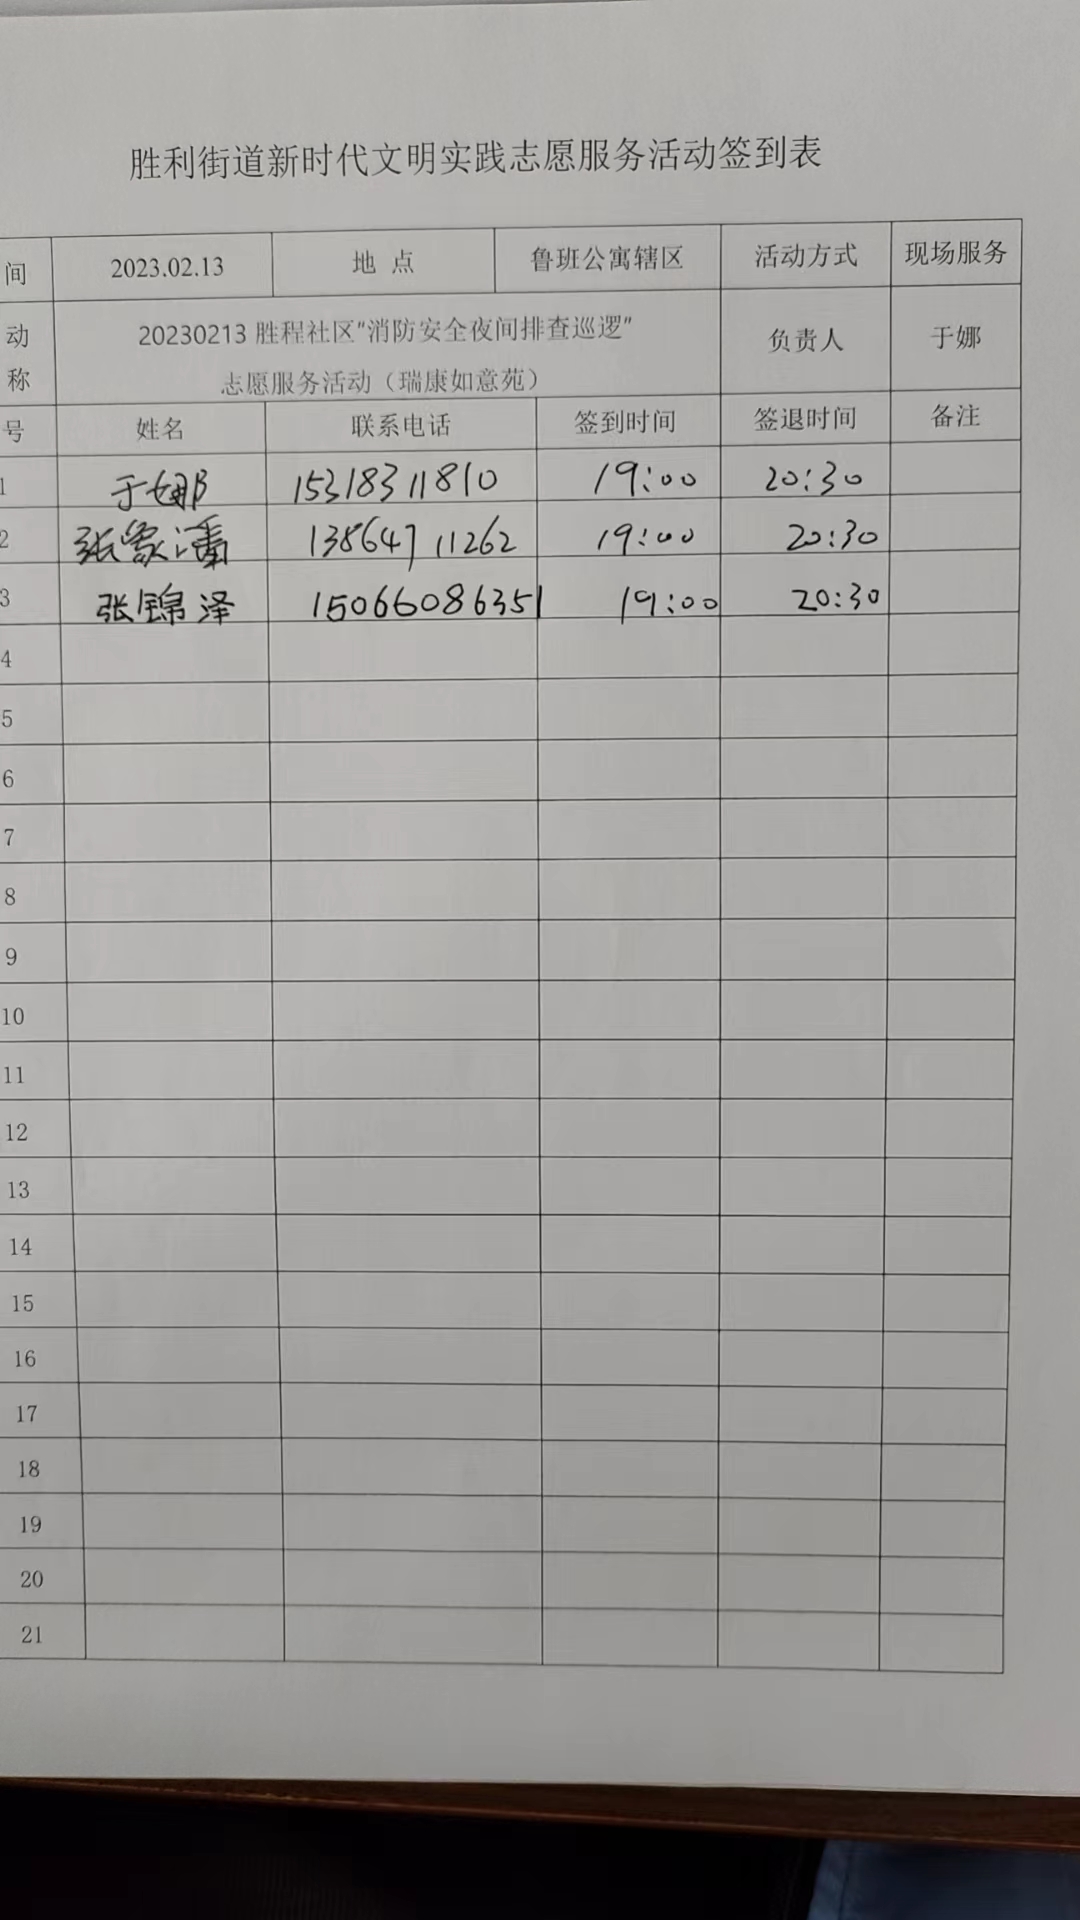 胜利街道新时代文明实践志愿服务活动签到表
间 2023.02.13 地 点 鲁班公寓辖区 活动方式 现场服务
动 20230213 胜程社区“消防安全夜间排查巡逻” 负责人 于娜
称 志愿服务活动（瑞康如意苑）
号 姓名 联系电话 签到时间 签退时间 备注
1 于娜 15318311810 19:00 20:30
2 张 潘 13864711262 19:00 20:30
3 张锦泽 15066086351 19:00 20:30
4
5
6
7
8
9
10
11
12
13
14
15
16
17
18
19
20
21